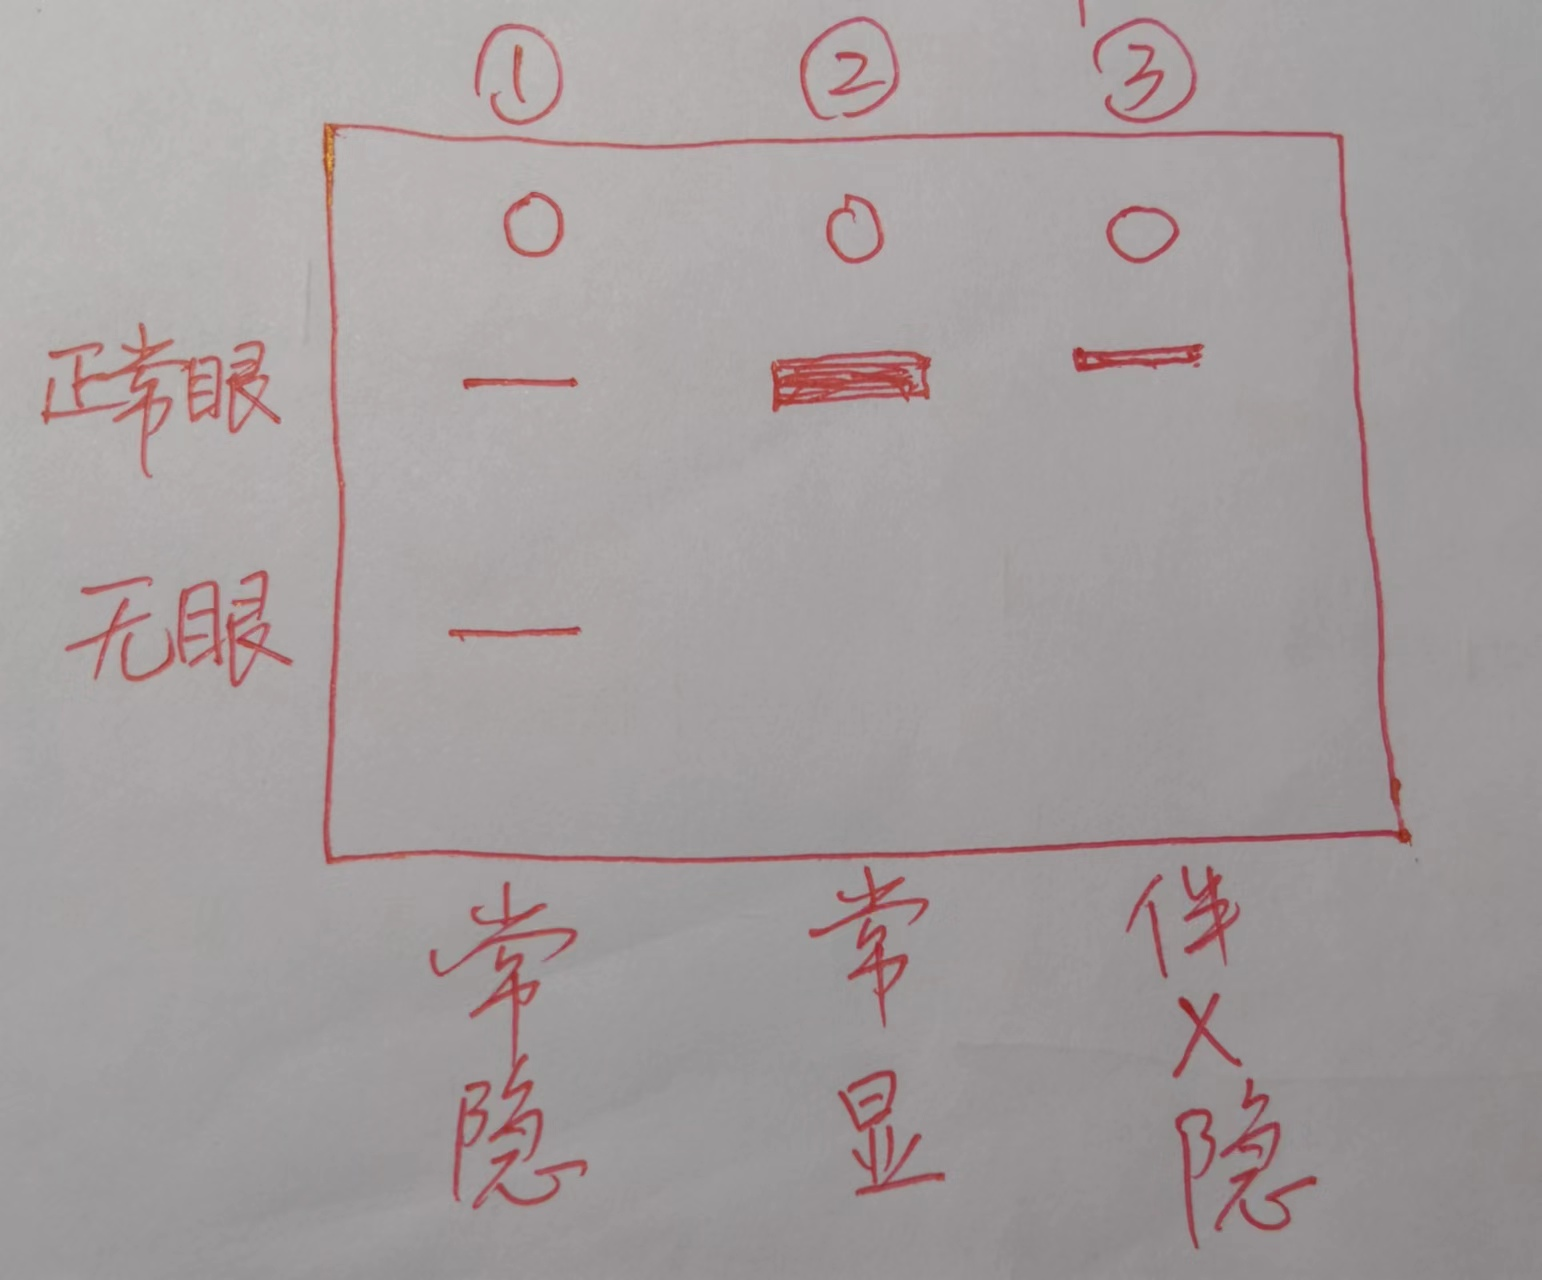 ① ② ③
正常眼
无眼
常隐
常显
伴X隐